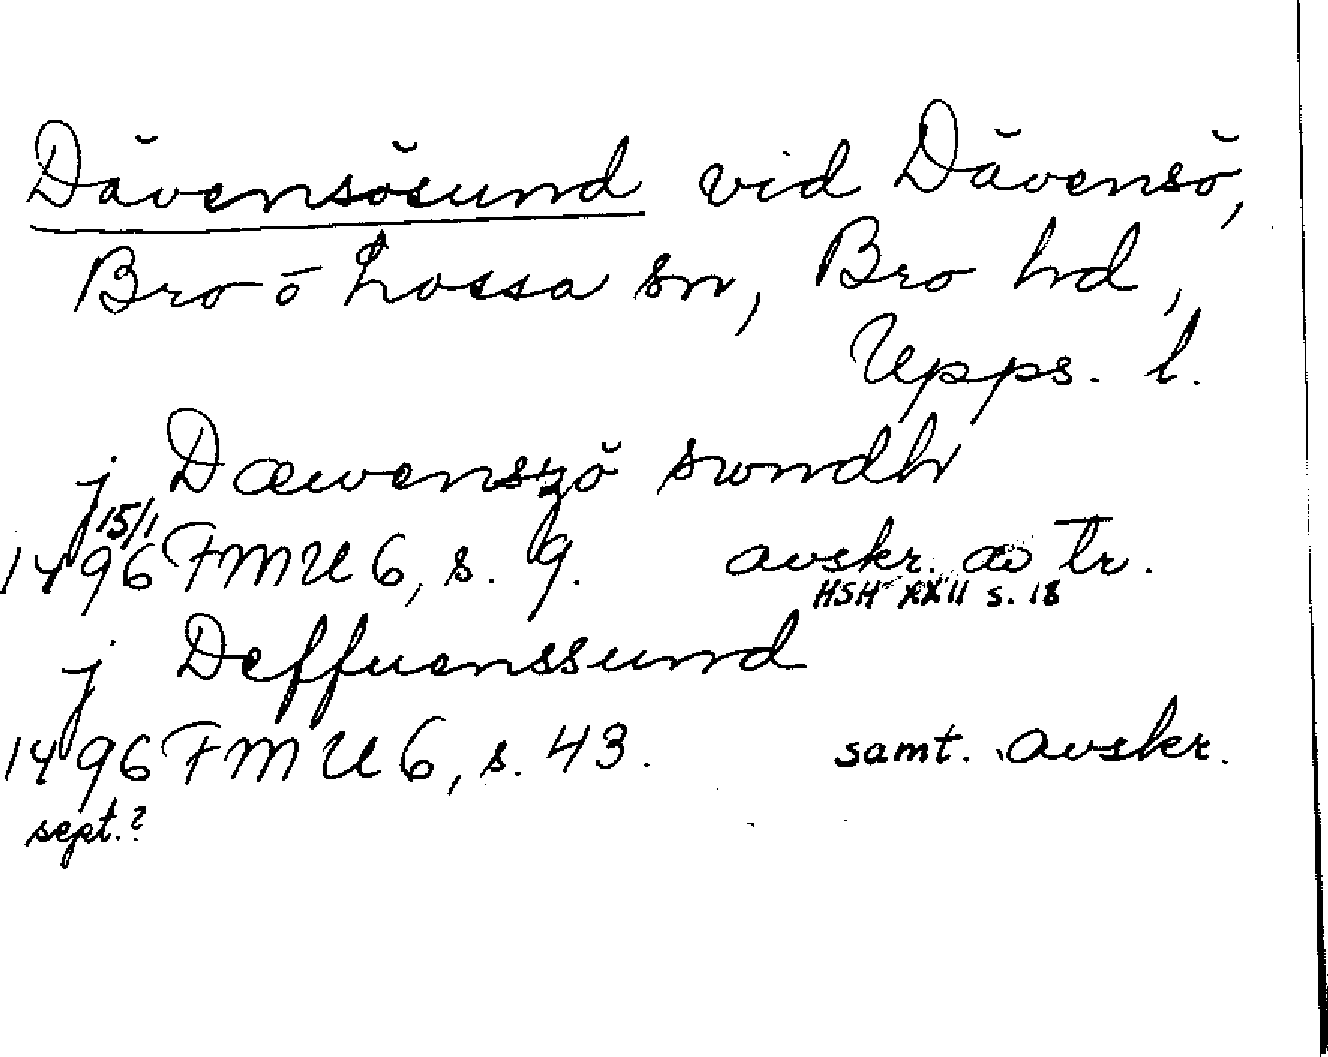 Dävensösund vid Dävensö,
Bro o Lossa sn, Bro hd,
Upps. l.
j Dæwenszö swndh
15/1
1496 FMU 6, s. 9. avskr. av tr.
HSH XXII s. 18
j Deffuenssund
1496 FMU 6, s. 43. samt. avskr.
sept.?